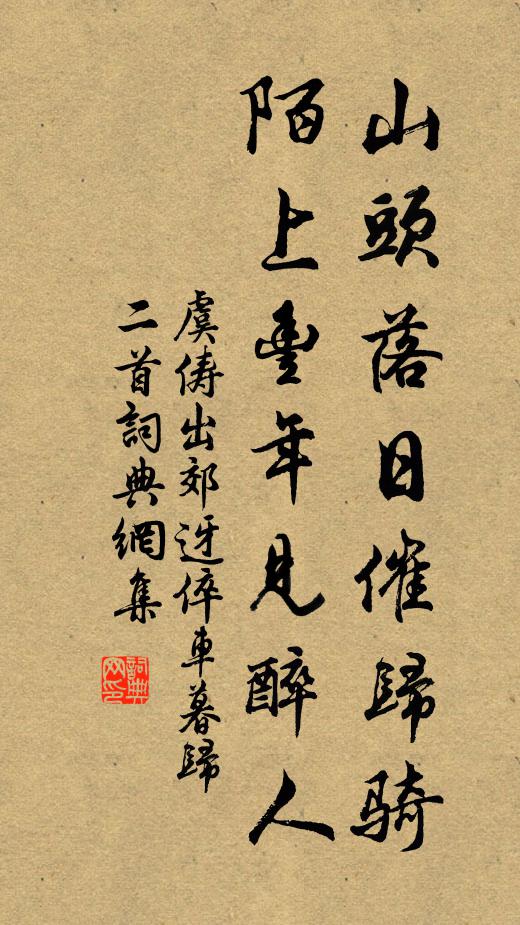 山頭落日催歸骑
陌上豊年見醉人
虞儔出郊迓倅車暮歸
二首詞典網集
詞典網印